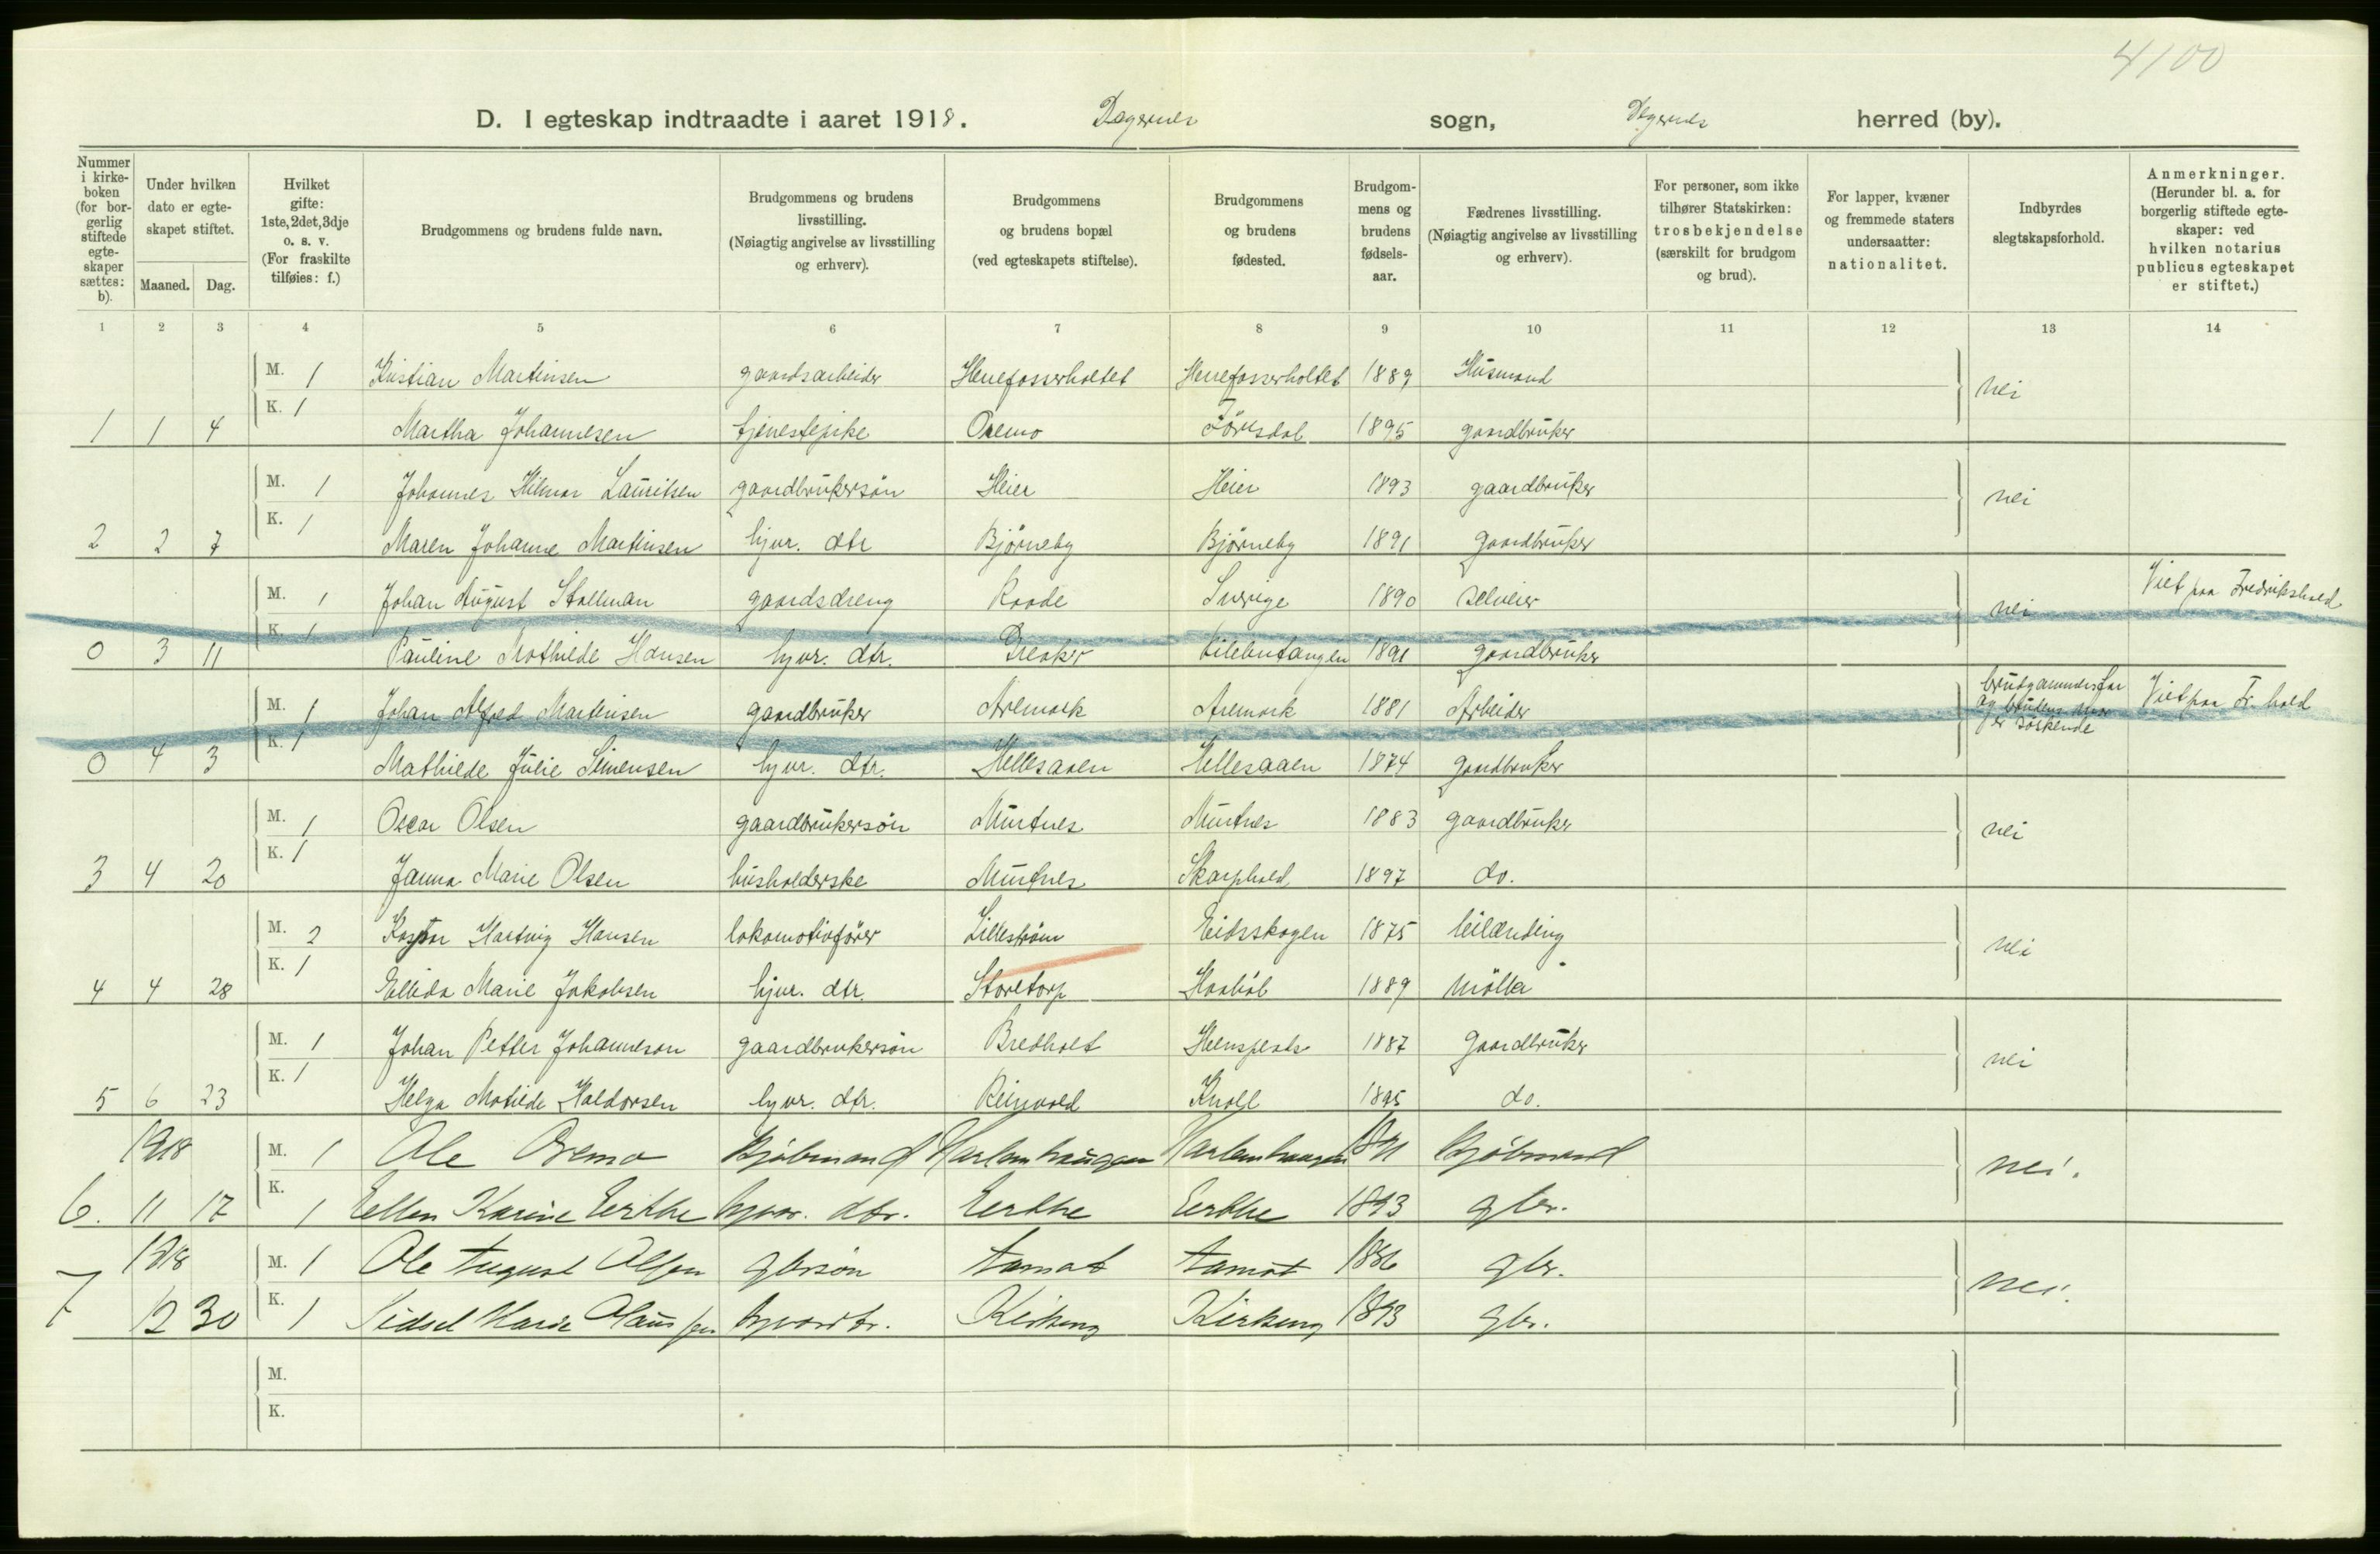 4100
D. I egteskap indtraadte i aaret 1918. Degernes sogn, Degernes herred (by).
Nummer i kirkeboken (for borgerlig stiftede egteskaper sættes: b).
Under hvilken dato er egteskapet stiftet.
Maaned. Dag.
Hvilket gifte: 1ste, 2det, 3dje o. s. v. (For fraskilte tilføies: f.)
Brudgommens og brudens fulde navn.
Brudgommens og brudens livsstilling. (Nøiagtig angivelse av livsstilling og erhverv).
Brudgommens og brudens bopæl (ved egteskapets stiftelse).
Brudgommens og brudens fødested.
Brudgommens og brudens fødselsaar.
Fædrenes livsstilling. (Nøiagtig angivelse av livsstilling og erhverv).
For personer, som ikke tilhører Statskirken: trosbekjendelse (særskilt for brudgom og brud).
For lapper, kvæner og fremmede staters undersaatter: nationalitet.
Indbyrdes slegtskapsforhold.
Anmerkninger. (Herunder bl. a. for borgerlig stiftede egteskaper: ved hvilken notarius publicus egteskapet er stiftet.)
1 2 3 4 5 6 7 8 9 10 11 12 13 14
M. 1 Kristian Martinsen gaardsarbeider 1889 Husmand nei
1 1 4 K. 1 Martha Johannesen tjenestepike Osemo 1895 gaardbruker
M. 1 Johannes Hilmar Lauritsen gaardbrukersøn Heier Heier 1893 gaardbruker nei
2 2 7 K. 1 Maren Johanne Martinsen hjvr. dtr Bjørneby Bjørneby 1891 gaardbruker
M. 1 Johan August Stallman gaardsdreng Raade Sverige 1890 selveier nei Viet paa Fredrikshald
0 3 11 K. 1 Pauline Mathilde Hansen hjvr. dtr. Greaker 1891 gaardbruker
M. 1 Johan Alfred Martinsen gaardbruker Aremark Aremark 1881 Arbeider brudgommens far og brudens mor er søskende Viet paa Fr.hald
0 4 3 K. 1 Mathilde Julie Simensen hjvr. dtr. Hellesaaen Hellesaaen 1874 gaardbruker
M. 1 Oscar Olsen gaardbrukersøn Murtnes Murtnes 1883 gaardbruker nei
3 4 20 K. 1 Janna Marie Olsen husholderske Murtnes Skarphol 1897 do.
M. 2 Kaspar Hartvig Hansen lokomotivfører Lillestrøm Eidsskogen 1875 leilænding nei
4 4 28 K. 1 Ellida Marie Jakobsen hjvr. dtr. Storetorp Haabøl 1889 Møller
M. 1 Johan Petter Johanneson gaardbrukersøn Bredholt 1887 Gaardbruker nei
5 6 23 K. 1 Helga Matilde Haldorsen hjvr. dtr. Knoll 1895 do.
1918 M. 1 Ole Osemo Kjøbmand Harlemhaugen Harlemhaugen Kjøbmand nei.
6. 11 17 K. 1 Ellen Karine Eerthe hjvr. dtr. Eerthe Eerthe 1893 gbr.
1918 M. 1 Ole August Olsen gbrsøn Aamot Aamot 1886 gbr. nei.
7 12 30 K. 1 Sidsel Marie Claussen Kirkeng Kirkeng 1893 gbr.
M.
K.